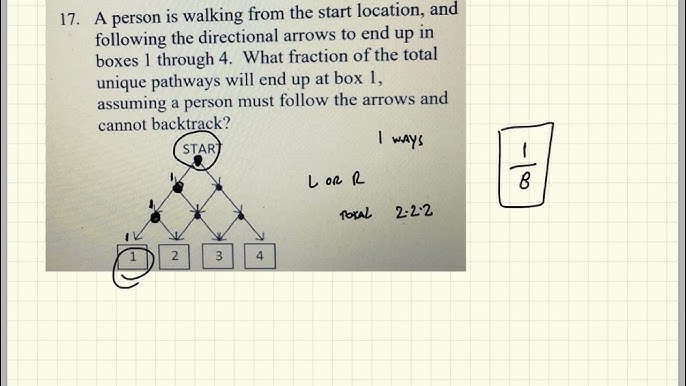 17. A person is walking from the start location, and
following the directional arrows to end up in
boxes 1 through 4. What fraction of the total
unique pathways will end up at box 1,
assuming a person must follow the arrows and
cannot backtrack?
1 WAYS
START
1
8
1
L OR R
1
TOTAL 2·2·2
1
1 2 3 4